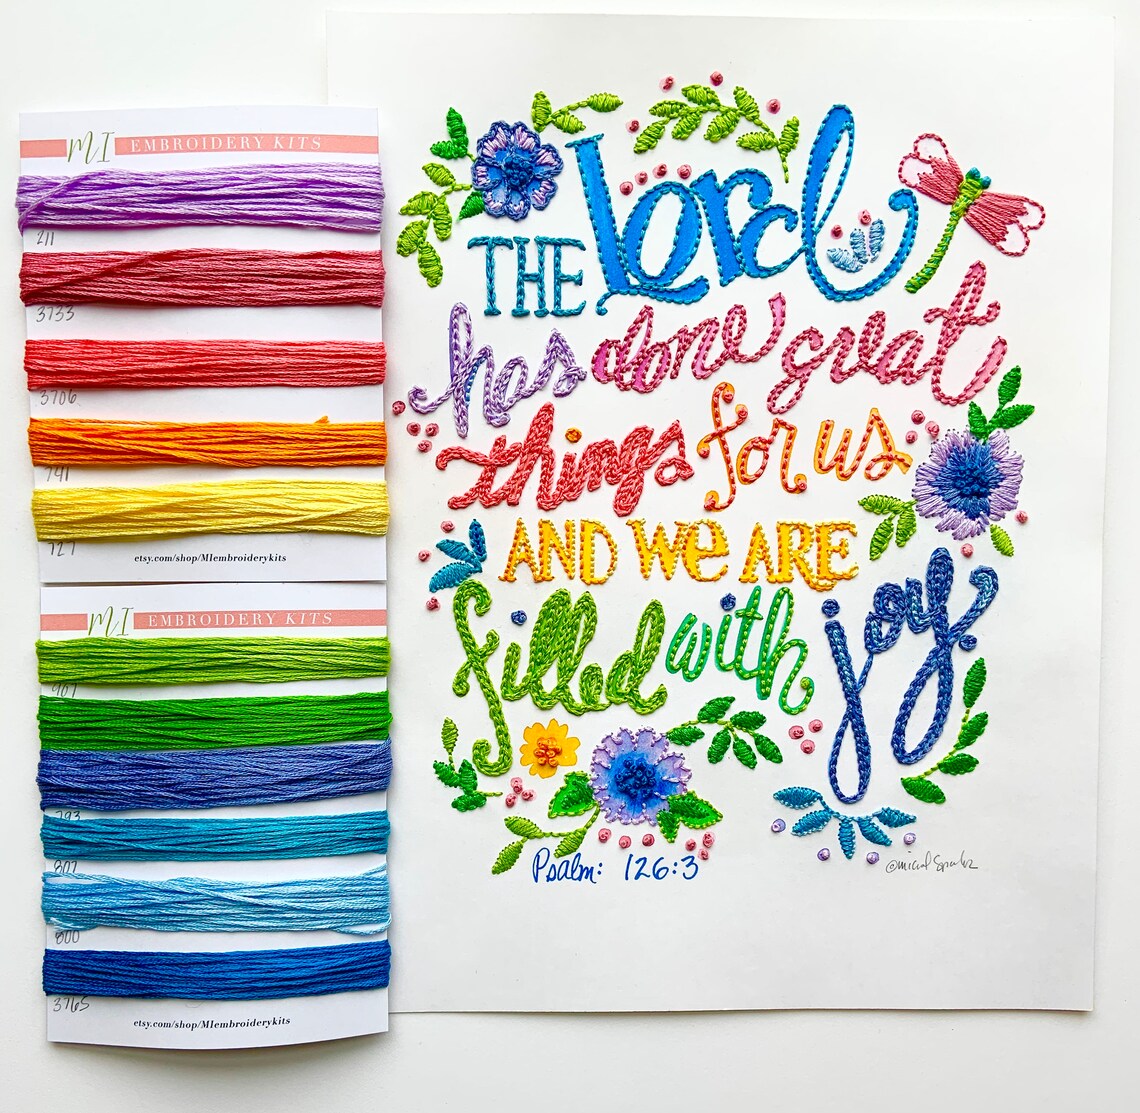 MI EMBROIDERY KITS
211
3733
3706
741
727
etsy.com/shop/MIembroiderykits
MI EMBROIDERY KITS
907
793
807
800
3765
etsy.com/shop/MIembroiderykits
THE Lord
has done great
things for us
AND We ARE
filled with joy.
Psalm: 126:3